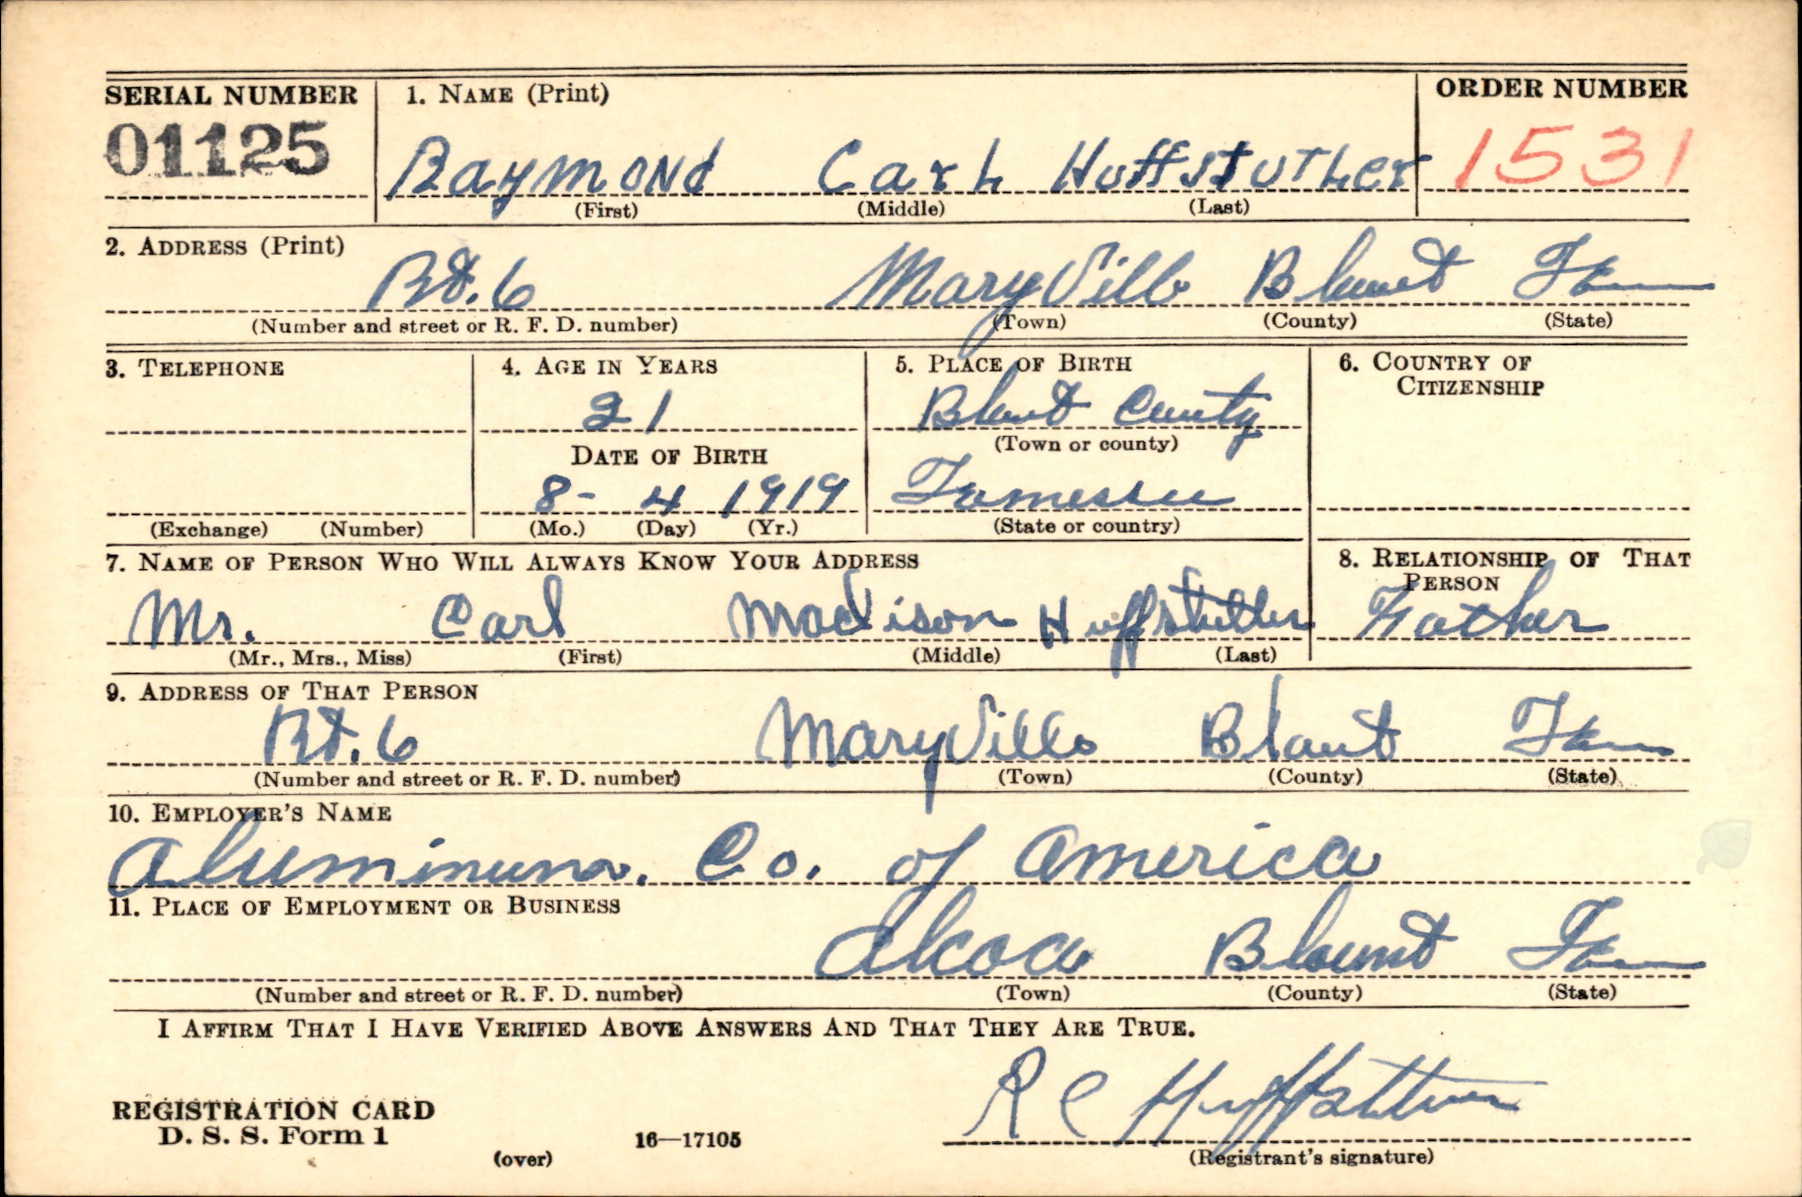 SERIAL NUMBER 1. NAME (Print) ORDER NUMBER
01125 Raymond Carl Huffstutler 1531
(First) (Middle) (Last)
2. ADDRESS (Print)
Rt. 6 MaryVille Blount Tenn
(Number and street or R. F. D. number) (Town) (County) (State)
3. TELEPHONE 4. AGE IN YEARS 5. PLACE OF BIRTH 6. COUNTRY OF CITIZENSHIP
21 Blount County
DATE OF BIRTH (Town or county)
8- 4 1919 Tennessee
(Exchange) (Number) (Mo.) (Day) (Yr.) (State or country)
7. NAME OF PERSON WHO WILL ALWAYS KNOW YOUR ADDRESS 8. RELATIONSHIP OF THAT PERSON
Mr. Carl Madison Huffstutler Father
(Mr., Mrs., Miss) (First) (Middle) (Last)
9. ADDRESS OF THAT PERSON
Rt. 6 MaryVille Blount Tenn
(Number and street or R. F. D. number) (Town) (County) (State)
10. EMPLOYER'S NAME
Aluminum. Co. of America
11. PLACE OF EMPLOYMENT OR BUSINESS
Alcoa Blount Tenn
(Number and street or R. F. D. number) (Town) (County) (State)
I AFFIRM THAT I HAVE VERIFIED ABOVE ANSWERS AND THAT THEY ARE TRUE.
R C Huffstutler
REGISTRATION CARD
D. S. S. Form 1 16—17105
(over) (Registrant's signature)